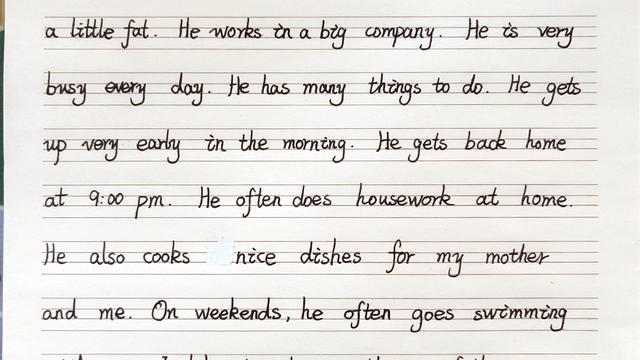 a little fat. He works in a big company. He is very
busy every day. He has many things to do. He gets
up very early in the morning. He gets back home
at 9:00 pm. He often does housework at home.
He also cooks nice dishes for my mother
and me. On weekends, he often goes swimming